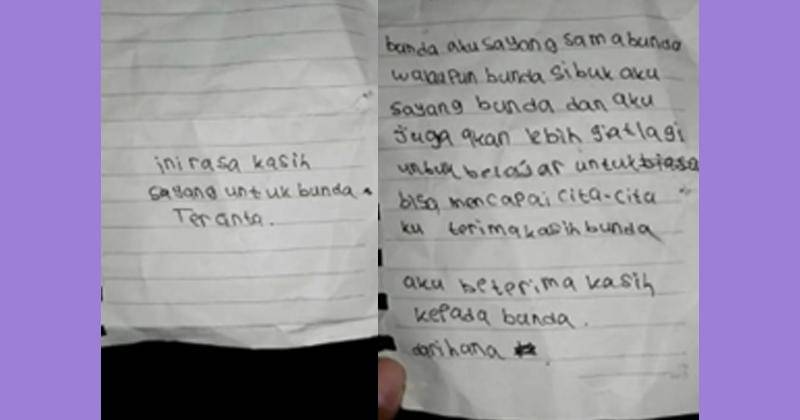 ini rasa kasih
sayang untuk bunda
Teranta.
bunda aku sayang sama bunda
walaupun bunda sibuk aku
sayang bunda dan aku
juga akan lebih giat lagi
untuk belajar untuk biasa
bisa mencapai cita-cita
ku terima kasih bunda
aku beterima kasih
kepada bunda.
dari hana